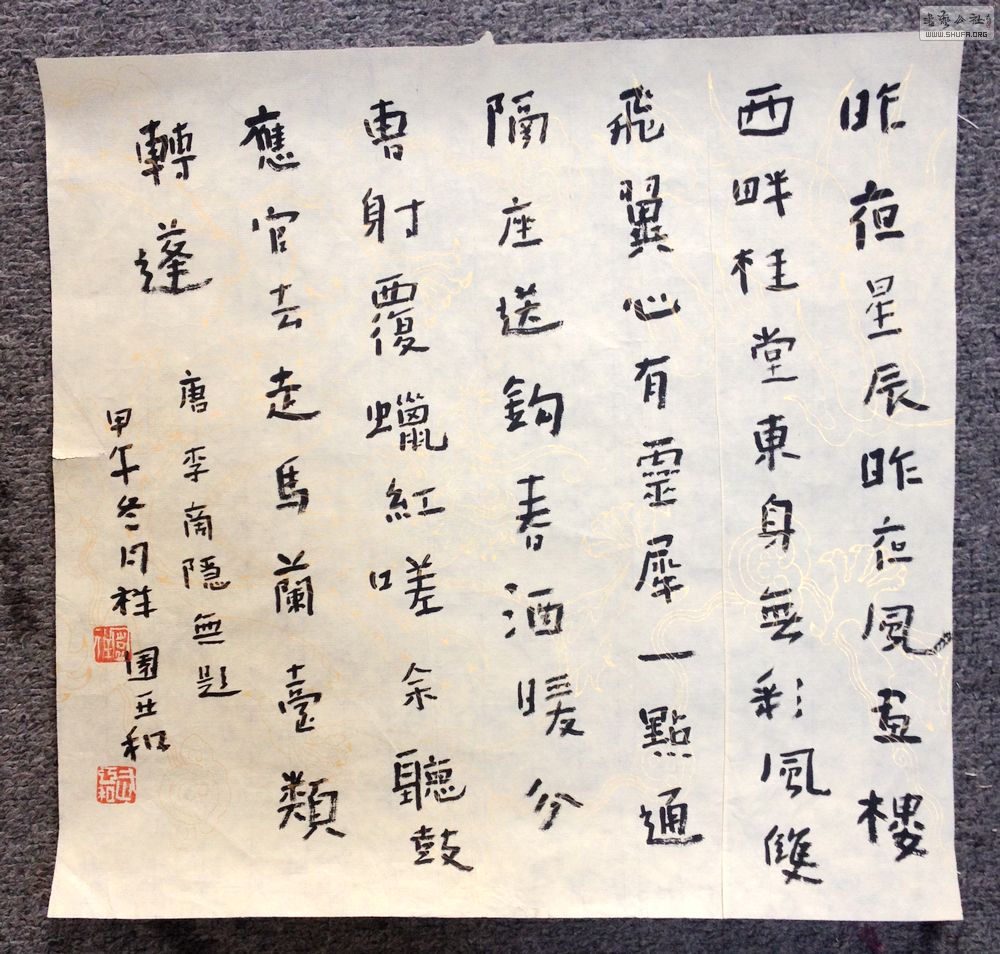 昨夜星辰昨夜風畫樓
西畔桂堂東身無彩風雙
飛翼心有靈犀一點通
隔座送鈎春酒暖分
曹射覆蠟紅嗟余聽鼓
應官去走馬蘭臺類
轉蓬
唐李商隱無題
甲午冬月祥園亚和
書藝公社
WWW.SHUFA.ORG